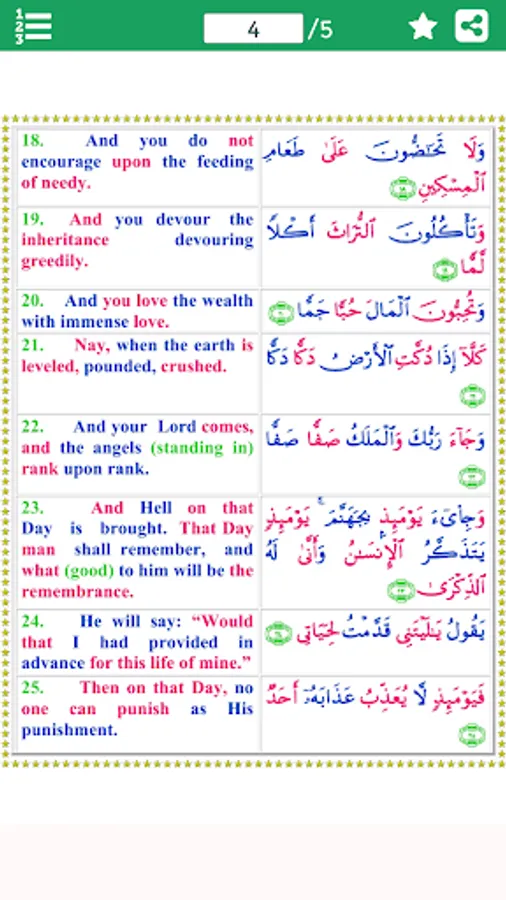 1
2
3
4 /5
18. And you do not
encourage upon the feeding
of needy.
وَلَا تَحَٰٓضُّونَ عَلَىٰ طَعَامِ
ٱلْمِسْكِينِ ١٨
19. And you devour the
inheritance devouring
greedily.
وَتَأْكُلُونَ ٱلتُّرَاثَ أَكْلًا
لَّمًّا ١٩
20. And you love the wealth
with immense love.
وَتُحِبُّونَ ٱلْمَالَ حُبًّا جَمًّا ٢٠
21. Nay, when the earth is
leveled, pounded, crushed.
كَلَّآ إِذَا دُكَّتِ ٱلْأَرْضُ دَكًّا دَكًّا
٢١
22. And your Lord comes,
and the angels (standing in)
rank upon rank.
وَجَآءَ رَبُّكَ وَٱلْمَلَكُ صَفًّا صَفًّا
٢٢
23. And Hell on that
Day is brought. That Day
man shall remember, and
what (good) to him will be the
remembrance.
وَجِا۟ىٓءَ يَوْمَئِذٍۭ بِجَهَنَّمَ ۚ يَوْمَئِذٍ
يَتَذَكَّرُ ٱلْإِنسَٰنُ وَأَنَّىٰ لَهُ
ٱلذِّكْرَىٰ ٢٣
24. He will say: “Would
that I had provided in
advance for this life of mine.”
يَقُولُ يَٰلَيْتَنِى قَدَّمْتُ لِحَيَاتِى ٢٤
25. Then on that Day, no
one can punish as His
punishment.
فَيَوْمَئِذٍ لَّا يُعَذِّبُ عَذَابَهُۥٓ أَحَدٌ
٢٥